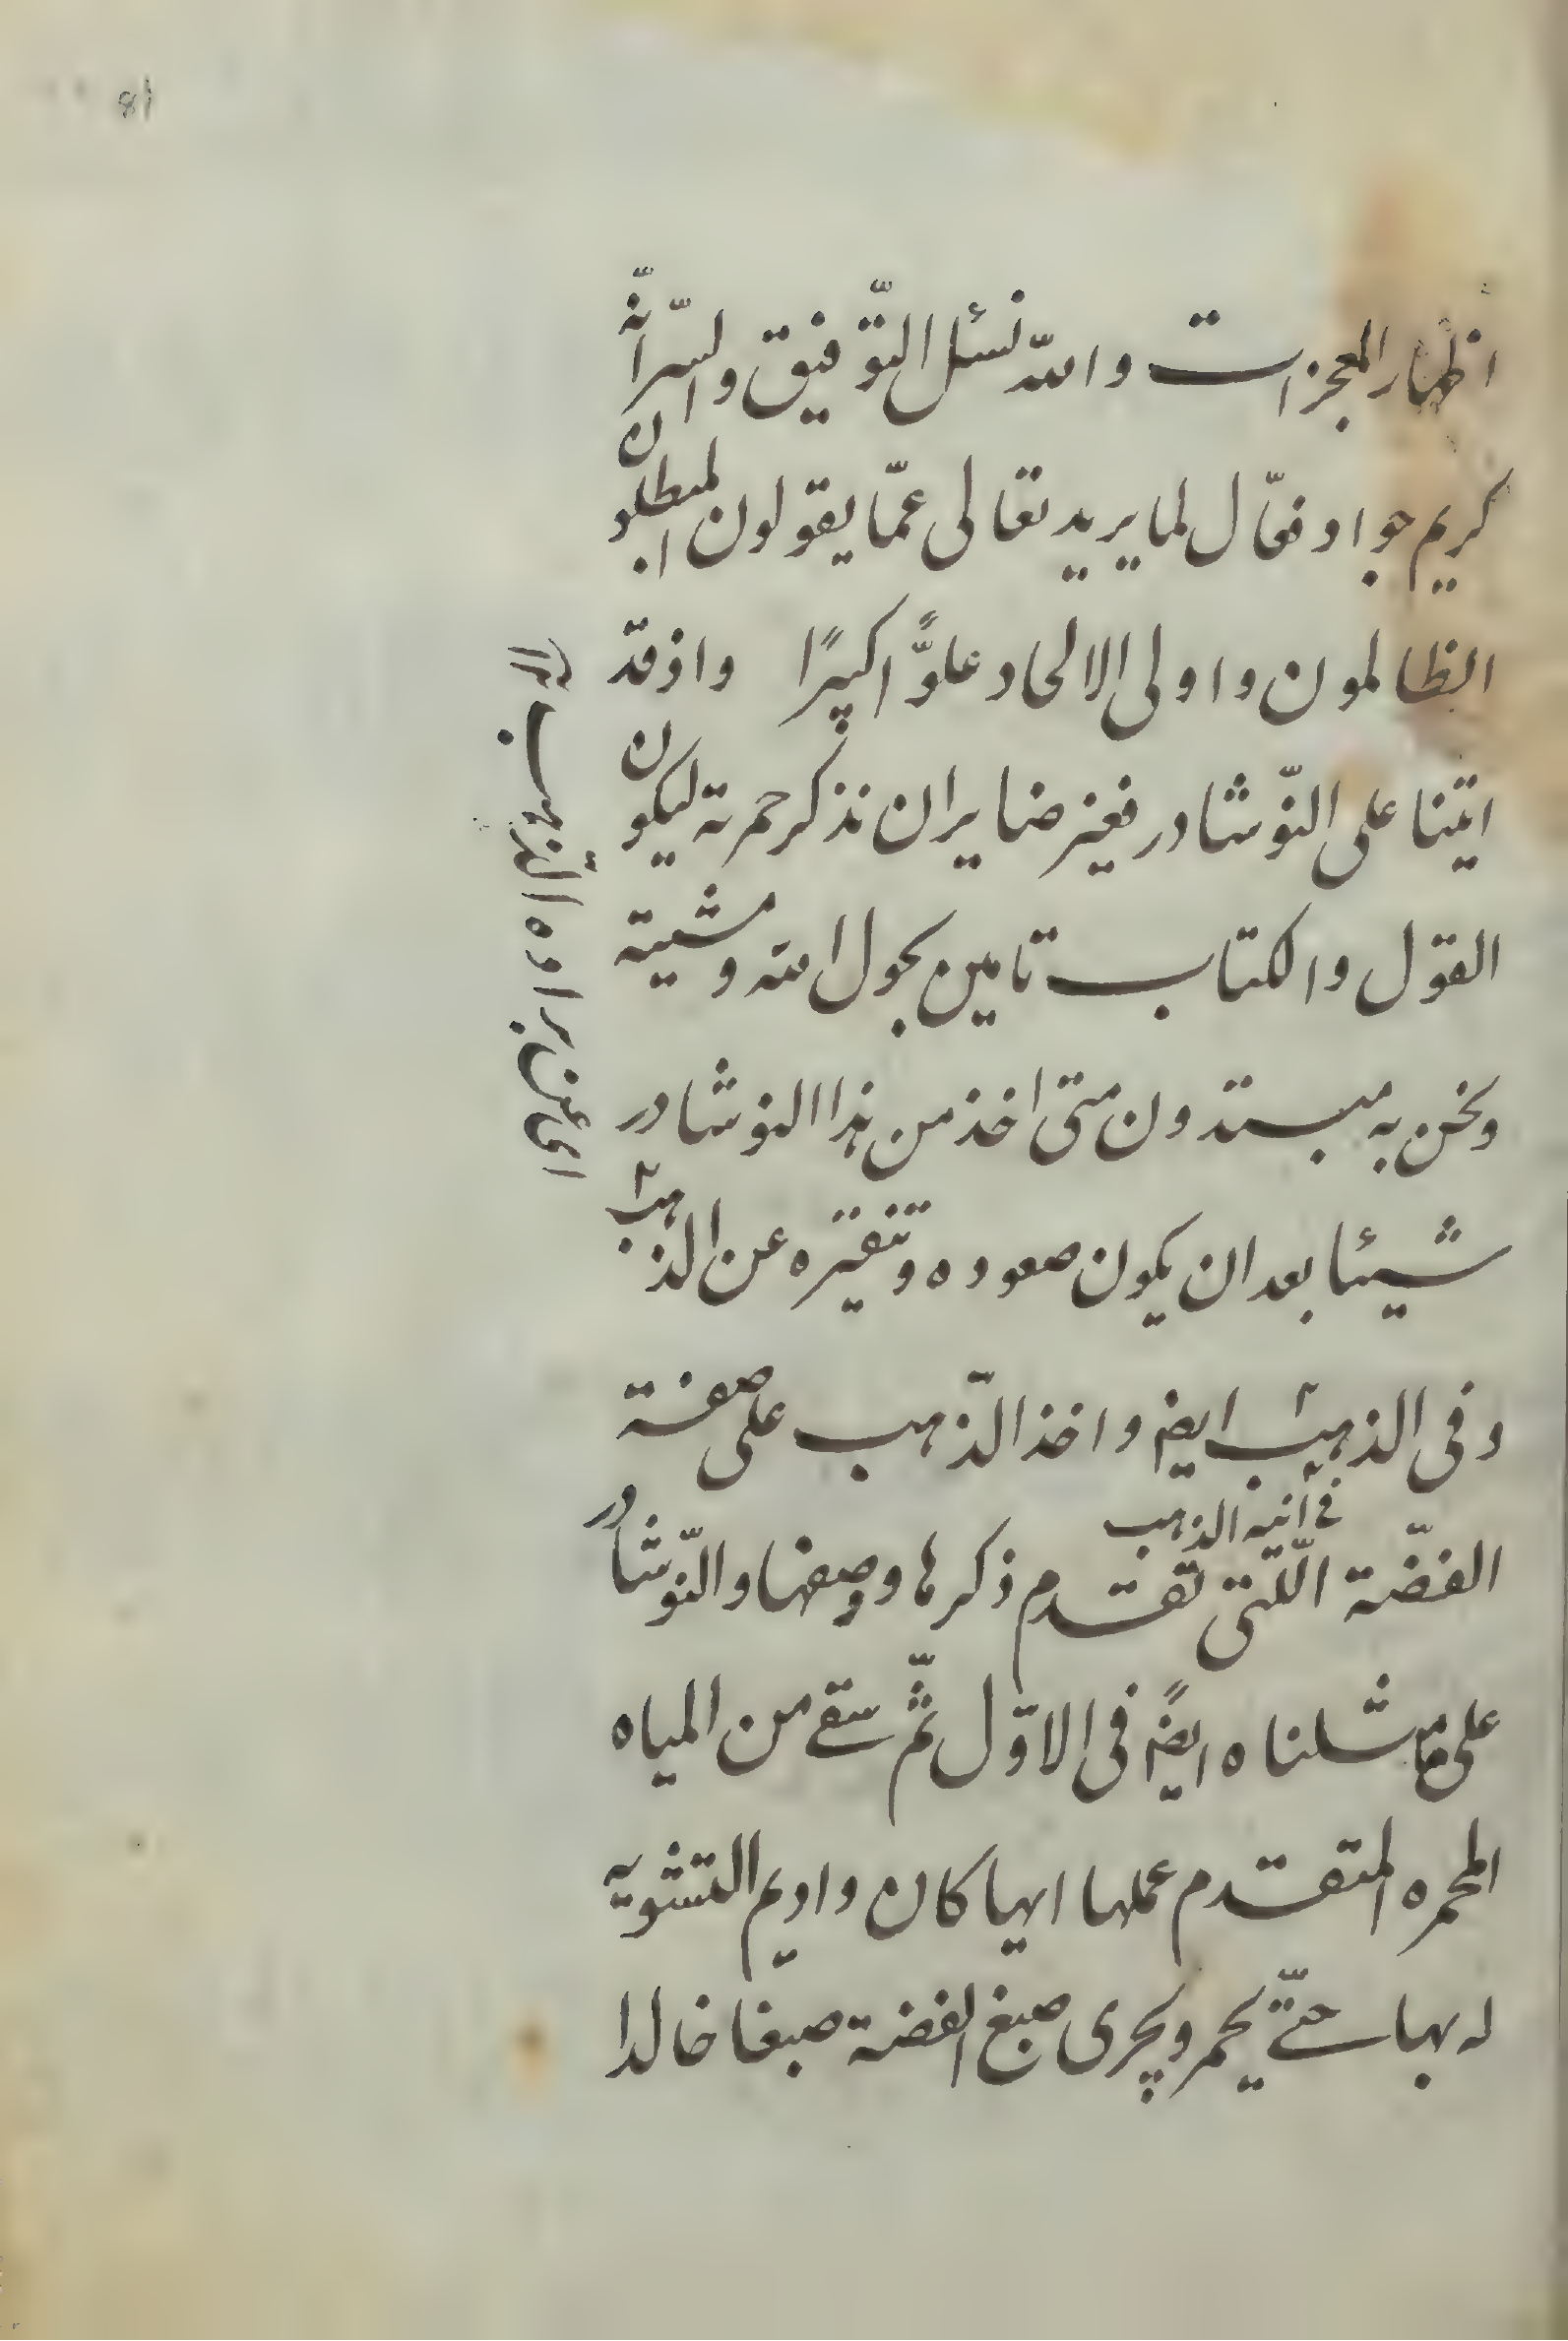 اظهار المعجزات والله نسئل التّوفيق والسّرّ انّه
كريم جواد فعّال لما يريد تعالى عمّا يقولون المبطلون
الظالمون واولى الالحاد علوًّا كبيرًا واذ قد
اتينا على النّوشادر فغير ضاير ان نذكر حمرته ليكون
القول والكتاب تامين بحول الله ومشيته
ونحن به مبتدون متى اخذ من هذا النوشادر
شيئا بعد ان يكون صعوده وتقتيره عن الذهب
وفى الذهب ايضا واخذ الذّهب على صفة
فى آنية الذهب
الفضّة الّتى تقدم ذكرها وصفها والنّوشادر
على ما مثلناه ايضًا فى الاوّل ثمّ سقى من المياه
المحمره المتقدم عملها ايها كان واديم التشويه
له بها حتّى يحمر ويجرى صبغ الفضة صبغا خالدا
اى عن براده الذهب
81